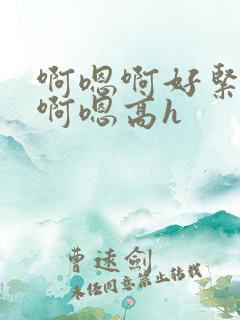 啊嗯啊好緊
啊嗯高h
曹速劍
未经同意禁止转载